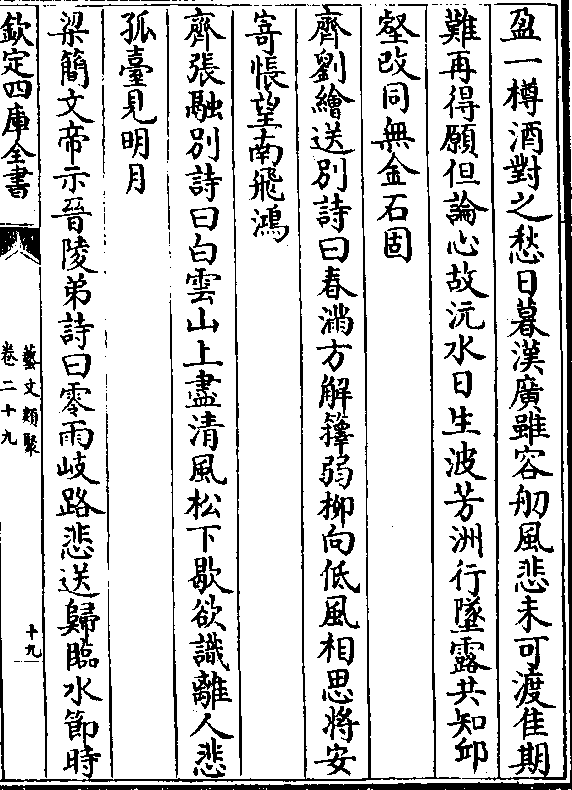 盈一樽酒對之愁日暮漢廣雖容舠風悲未可渡佳期
難再得願但論心故沅水日生波芳洲行墜露共知邱
壑改同無金石固
齊劉繪送別詩曰春滿方解籜弱柳向低風相思將安
寄悵望南飛鴻
齊張融別詩曰白雲山上盡清風松下歇欲識離人悲
孤臺見明月
梁簡文帝示晉陵弟詩曰零雨岐路悲送歸臨水節時
欽定四庫全書
藝文類聚
卷二十九
十九